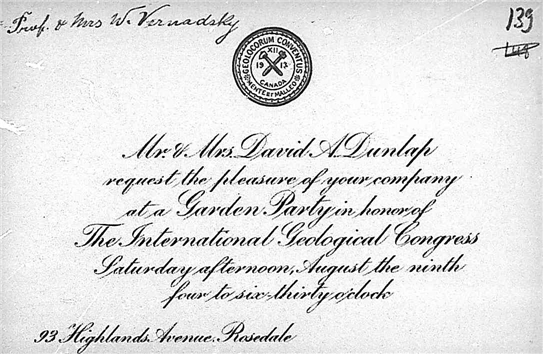 Prof. & Mrs W. Vernadsky
139
GEOLOGORUM CONVENTUS
XII
19 13
CANADA
MENTE ET MALLEO
Mr. & Mrs. David A. Dunlap
request the pleasure of your company
at a Garden Party in honor of
The International Geological Congress
Saturday afternoon, August the ninth
four to six-thirty o'clock
93 Highlands Avenue, Rosedale